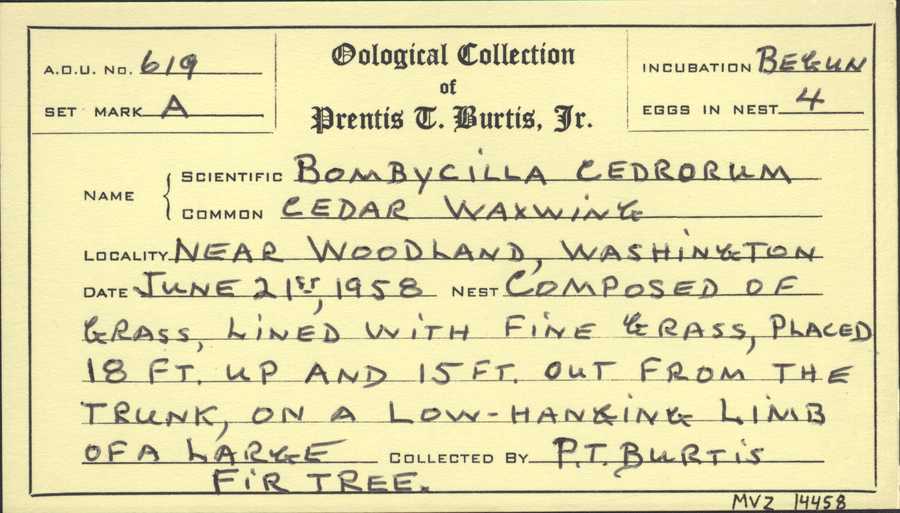 A.O.U. No. 619
SET MARK A
Oological Collection
of
Prentis T. Burtis, Jr.
INCUBATION BEGUN
EGGS IN NEST 4
NAME
SCIENTIFIC BOMBYCILLA CEDRORUM
COMMON CEDAR WAXWING
LOCALITY NEAR WOODLAND, WASHINGTON
DATE JUNE 21ST, 1958 NEST COMPOSED OF
GRASS, LINED WITH FINE GRASS, PLACED
18 FT. UP AND 15 FT. OUT FROM THE
TRUNK, ON A LOW-HANGING LIMB
OF A LARGE COLLECTED BY P.T. BURTIS
FIR TREE.
MVZ 14458